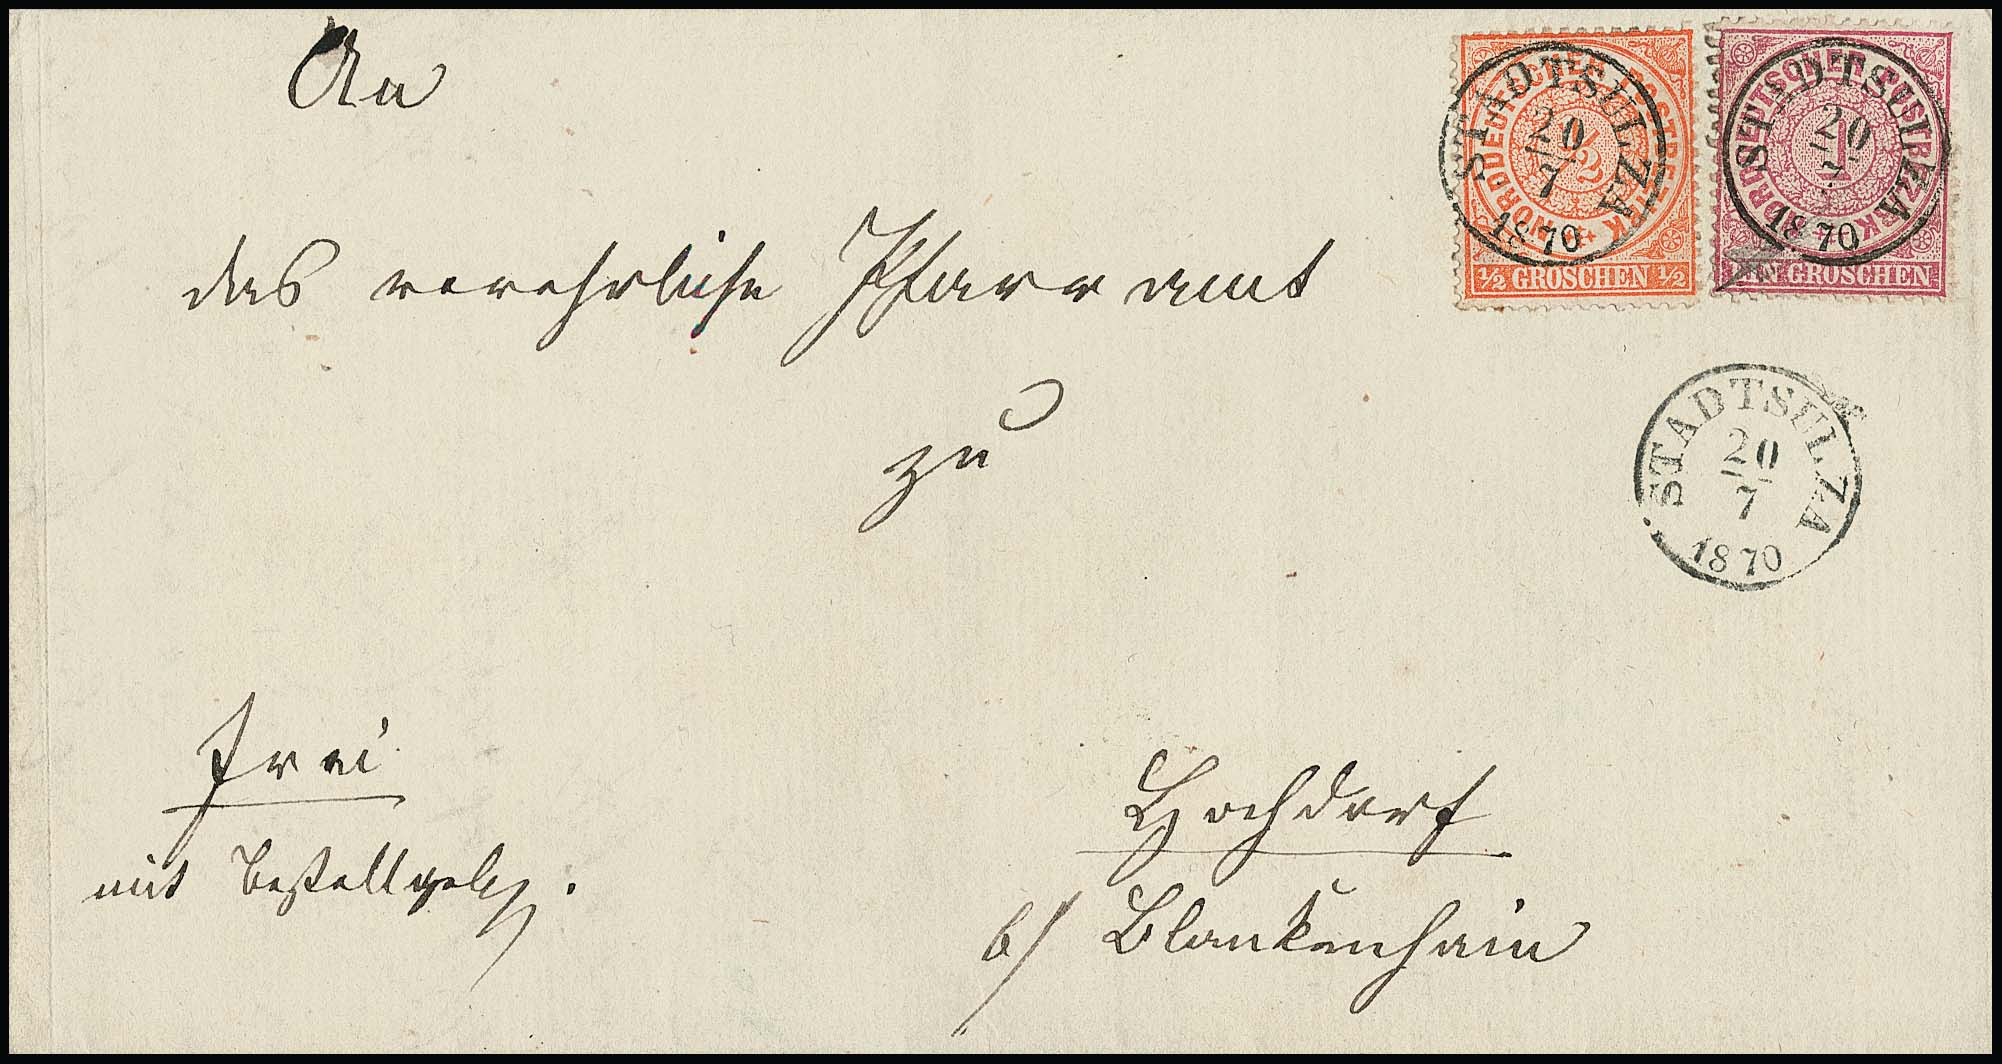 An
das verehrliche Pfarramt
zu
Hochdorf
b/ Blankenhain
Frei
mit Bestellgeld.
NORDDEUTSCHER POSTBEZIRK
1/2
1/2 GROSCHEN 1/2
STADTSULZA
20
7
1870
NORDDEUTSCHER POSTBEZIRK
1
GROSCHEN
STADTSULZA
20
7
1870
STADTSULZA
20
7
1870